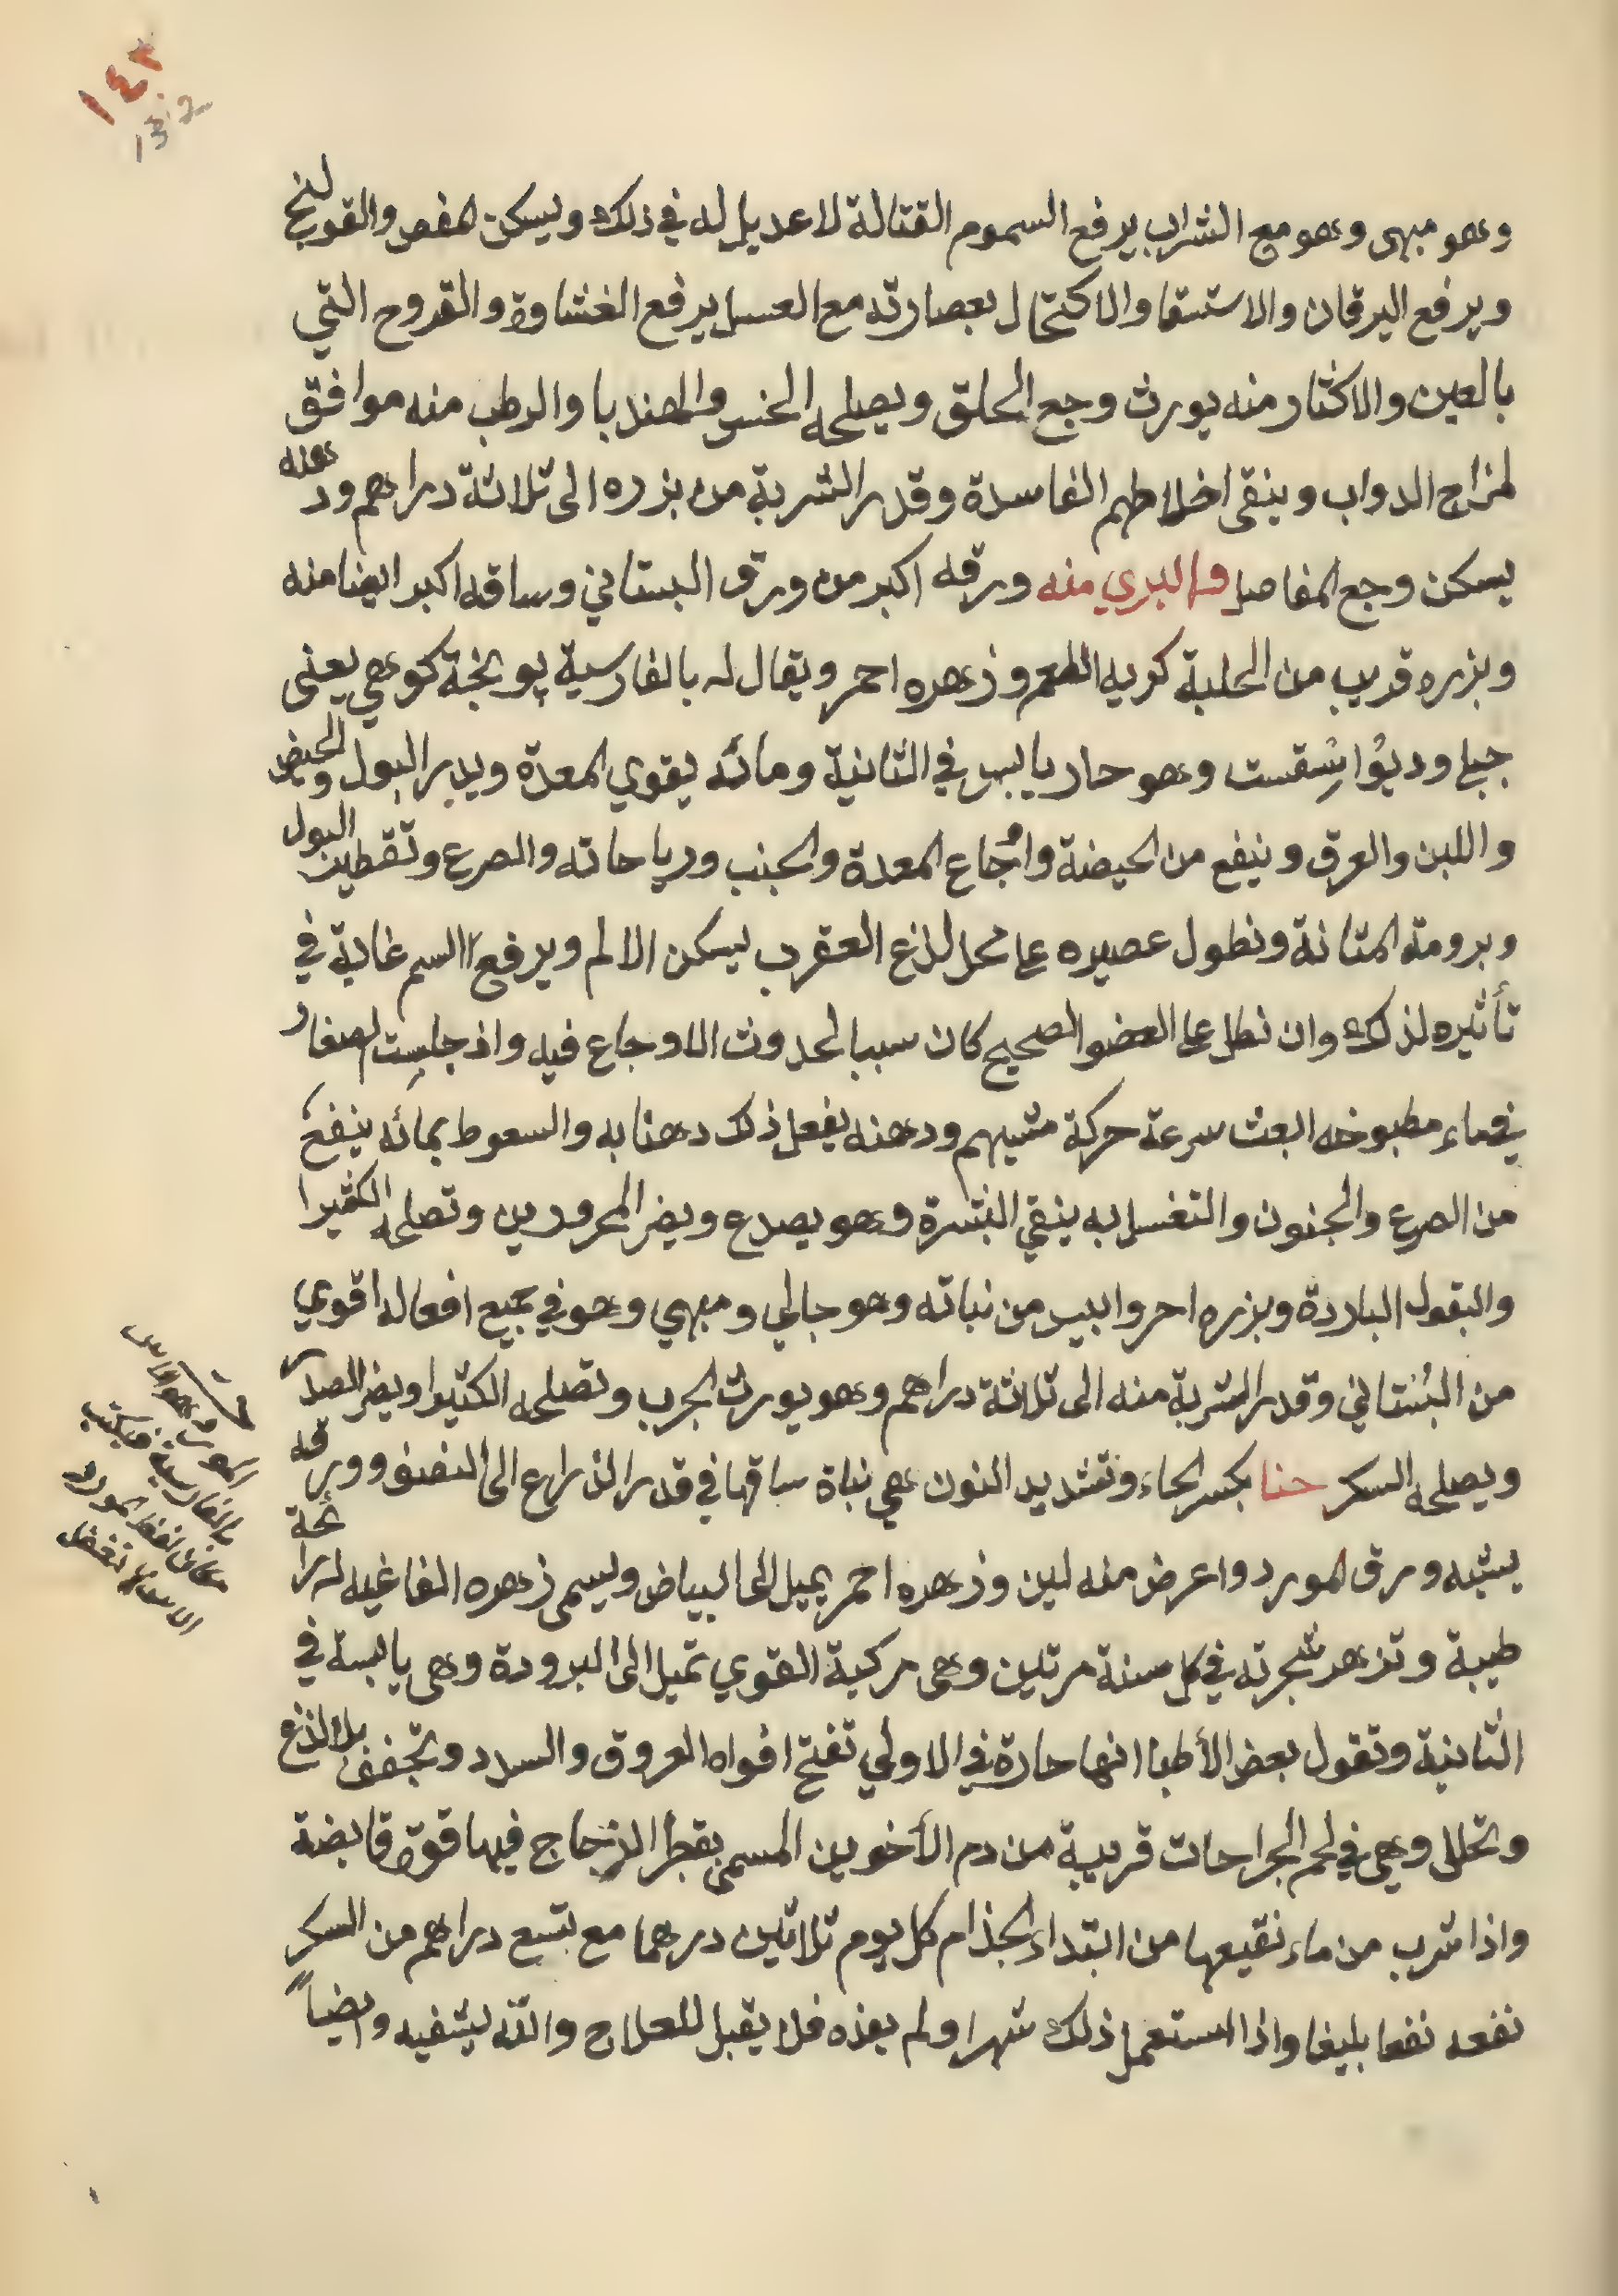 ١٤٢
132
وهو مبهى وهو مع الشراب يرفع السموم القتالة لا عديل له في ذلك ويسكن المغص والقولنج
ويرفع اليرقان والاستسقا والاكتحال بعصارته مع العسل يرفع الغشاوة والقروح التي
بالعين والاكثار منه يورث وجع الحلق ويصلحه الخس والهندبا والرطب منه موافق
لمزاج الدواب وينقى اخلاطهم الفاسدة وقدر الشربة من بزره الى ثلاثة دراهم ودهنه
يسكن وجع المفاصل والبري منه ورقه اكبر من ورق البستاني وساقه اكبر ايضا منه
وبزره قريب من الحلبة كريه الطعم وزهره احمر ويقال له بالفارسية پويخة كوهي يعنى
جبلي وديُوا سِقست وهو حار يابس في الثانية ومائه يقوي المعدة ويدر البول والحيض
واللبن والعرق وينفع من الحيضة واوجاع المعدة والجنب ورياحاته والصرع وتقطير البول
وبرودة المثانة ونطول عصيره على محل لذع العقرب يسكن الالم ويرفع السم غاية في
تأثيره لذلك وان نطل على العضو الصحيح كان سببا لحدوث الاوجاع فيه واذ جلست لصغار
في ماء مطبوخه ابعث سرعة حركة مشيهم ودهنه يفعل ذلك دهنا به والسعوط بمائه ينفع
من الصرع والجنون والتغسل به ينقي البشرة وهو يصدع ويضر المحرورين وتصلحه الكثيرا
والبقول الباردة وبزره احر وايبس من نباته وهو جالي ومبهي وهو في جميع افعاله اقوي
من البُستاني وقدر الشربة منه الى ثلاثة دراهم وهو يورث الجرب وتصلحه الكثيرا ويضر الصدر
ويصلحه السكر حنا بكسر الحاء وتشديد النون هي نباة ساقها في قدر الذراع الى النصف وورقه
يشبه ورق المورد واعرض منه لين وزهره احمر يميل الى البياض ويسمى زهره الفاغيه له رائحة
طيبة وتزهر شجرته في كل سنة مرتين وهى مركبة القوي تميل الى البرودة وهى يابسة في
الثانية وتقول بعض الأطبا انها حارة في الاولي تفتح افواه العروق والسدد وتجفف بلا لذع
وتحلل وهي في لحم الجراحات قريبة من دم الأخوين المسمى بقطر الزجاج فيها قوة قابضة
واذا شرب من ماء نقيعها من ابتداء الجذام كل يوم ثلاثين درهما مع تسع دراهم من السكر
نفعه نفعا بليغا واذا استعمل ذلك شهرا ولم يفده فلا يقبل للعلاج والله يشفيه وايضاً
بالفارسية